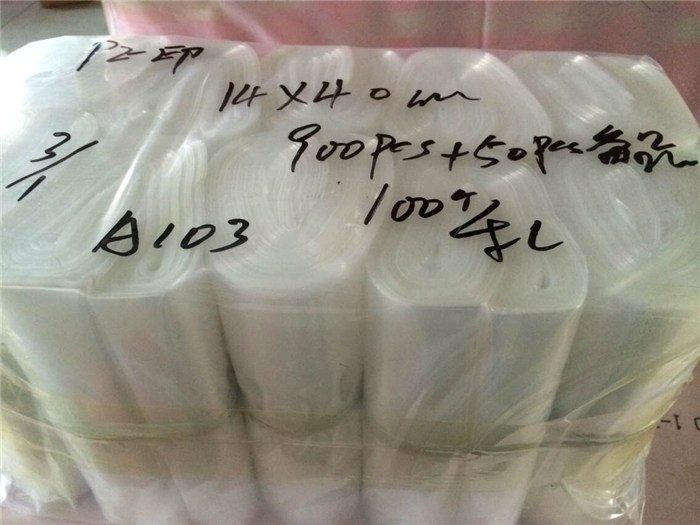 PZ-EP
14×40cm
3/1
900pcs+50pcs备品
A103
100个/